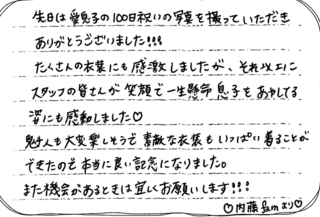 先日は愛息子の100日祝いの写真を撮っていただき
ありがとうございました!!!
たくさんの衣装にも感激しましたが、それ以上に
スタッフの皆さんが笑顔で一生懸命息子をあやしてる
姿にも感動しました♡
主人も大変楽しそうで素敵な衣装もいっぱい着ることが
できたので本当に良い記念になりました。
また機会があるときは宜しくお願いします!!!
♡内藤famより♡